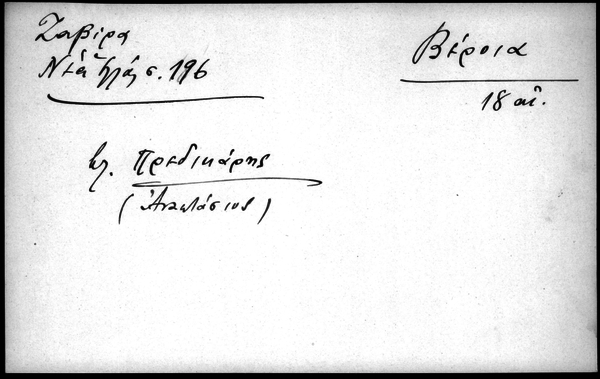 Ζαβίρα
Νέα Ἑλλάς σ. 196
Βέροια
18 αἰ.
βλ. Πρεδικάρης
(Ἀναστάσιος)